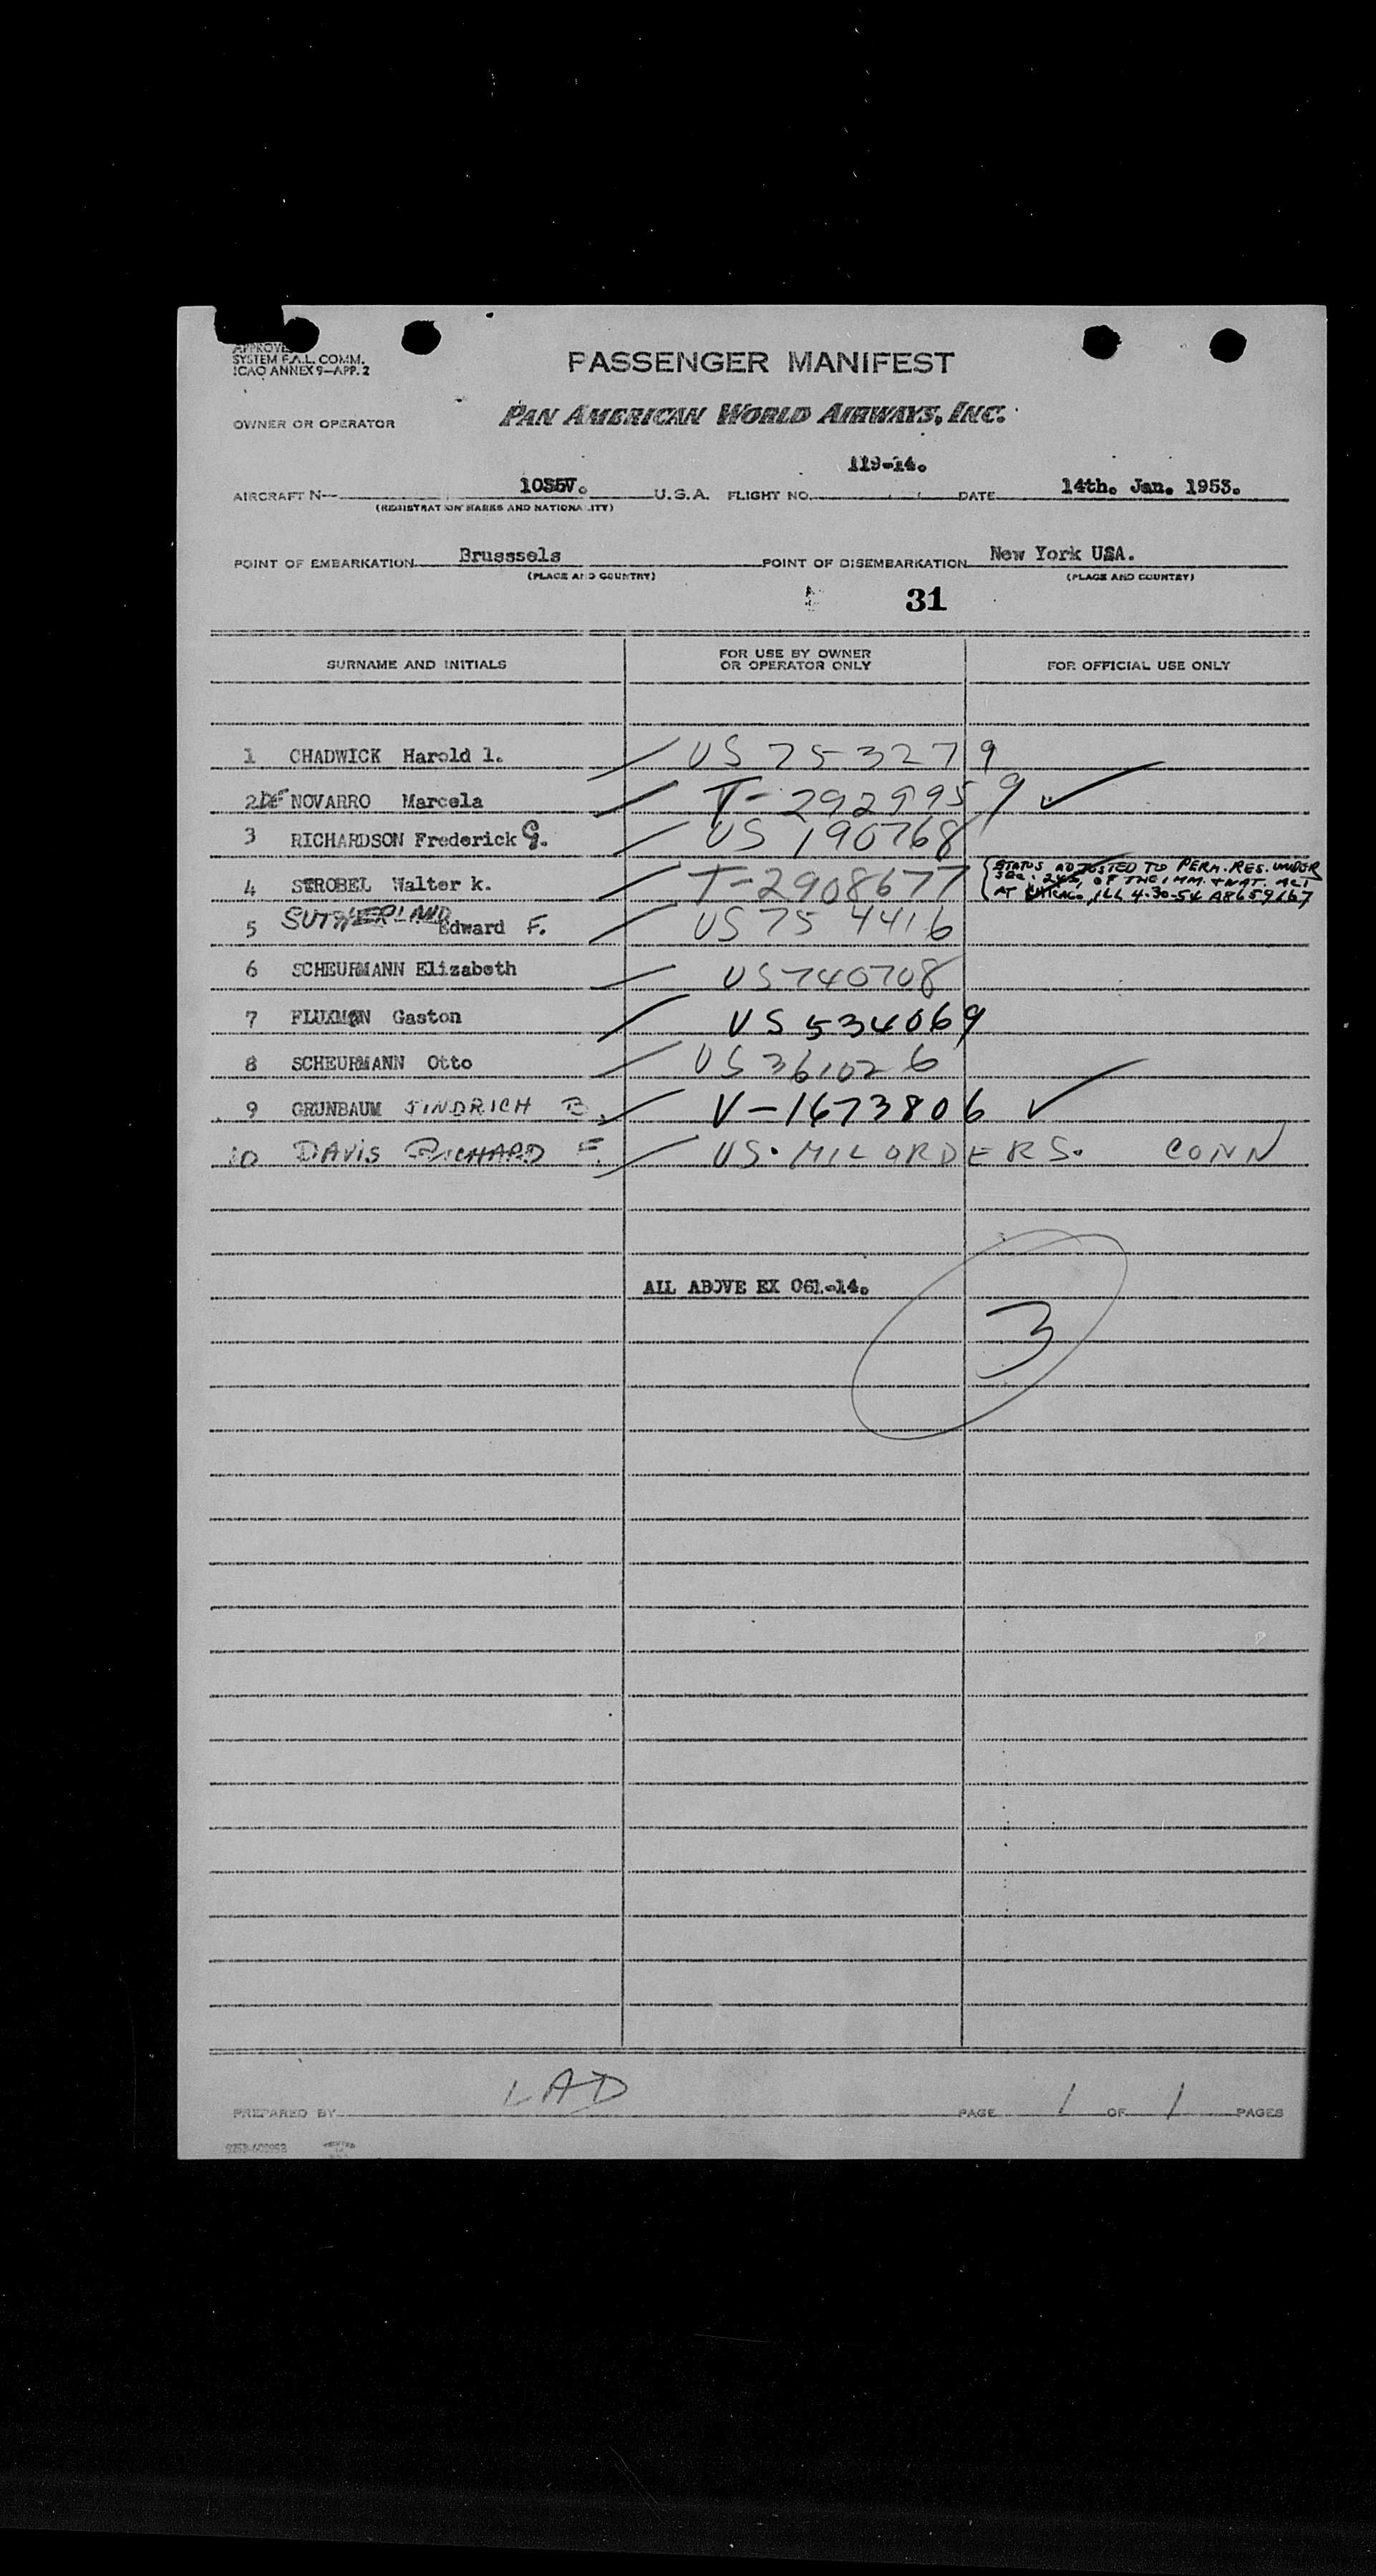 APPROVE
SYSTEM F.A.L. COMM.
ICAO ANNEX 9—APP. 2
PASSENGER MANIFEST
OWNER OR OPERATOR
PAN AMERICAN WORLD AIRWAYS, INC.
119-14.
AIRCRAFT N— 1035V. U.S.A. FLIGHT NO. DATE 14th. Jan. 1953.
(REGISTRATION MARKS AND NATIONALITY)
POINT OF EMBARKATION Brusssels POINT OF DISEMBARKATION New York USA.
(PLACE AND COUNTRY) (PLACE AND COUNTRY)
31
SURNAME AND INITIALS FOR USE BY OWNER OR OPERATOR ONLY FOR OFFICIAL USE ONLY
1 CHADWICK Harold l. US 753279
2 DE NOVARRO Marcela T-2929959 ✓
3 RICHARDSON Frederick G. US 190768
4 STROBEL Walter k. T-2908677 STATUS ADJUSTED TO PERM. RES. UNDER
SEC. 245, OF THE IMM. + NAT. ACT
AT CHICAGO, ILL 4-30-54 A8659167
5 SUTHERLAND Edward F. US 75 4416
6 SCHEURMANN Elizabeth US 740708
7 FLUXMAN Gaston US 534069
8 SCHEURMANN Otto US 361026
9 GRUNBAUM JINDRICH B. V-1673806 ✓
10 DAVIS RICHARD F. US. MIL ORDERS. CONN
ALL ABOVE EX 061-14.
3
LAD
PREPARED BY PAGE 1 OF 1 PAGES